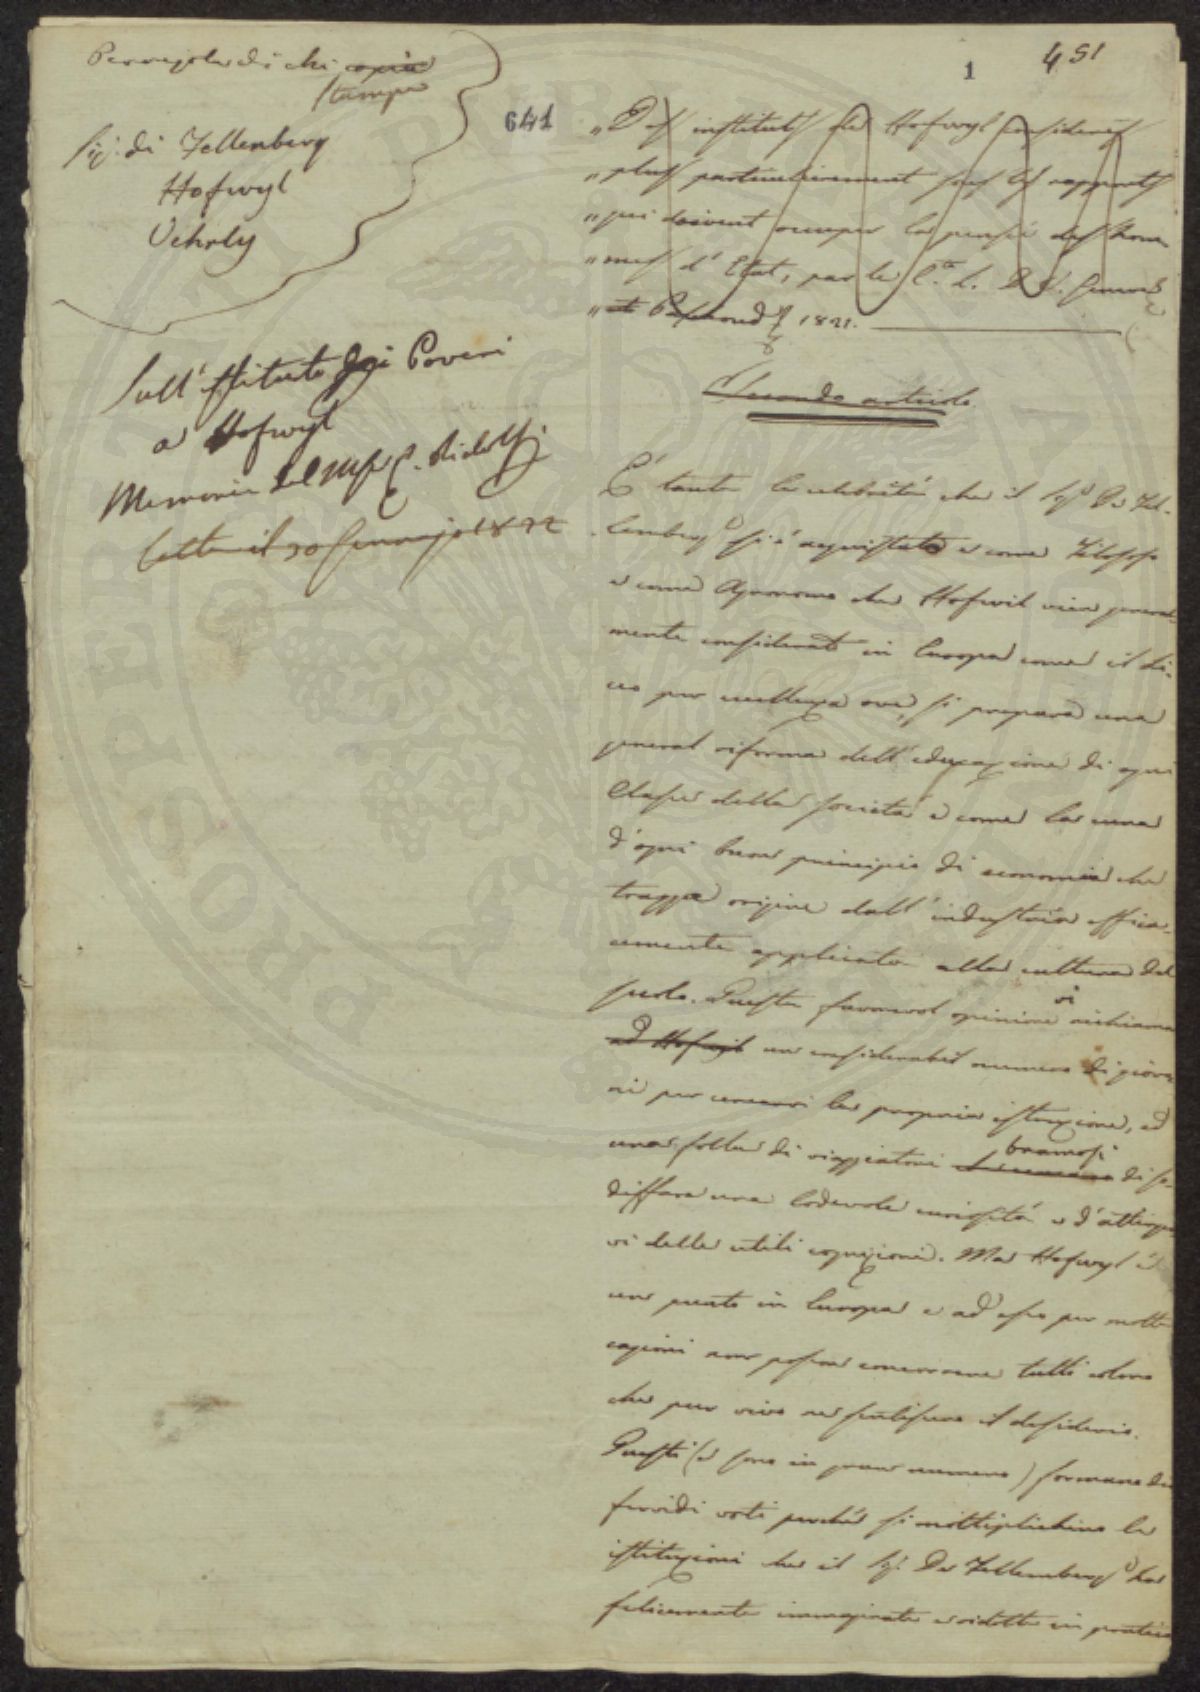 Per regola di chi copia
stampa
Sig. di Fellenberg
Hofwyl
Vehrly
Sull'Istituto dei Poveri
a Hofwyl
Memoria del C. Ridolfi
letta il 30 Gennajo 1822
641
1
451
"Des instituts de Hofwyl considerés
"plus particulierement sous les rapports
"qui doivent occuper la pensée des hom-
"mes d'Etat, par le C.te L. de V. Geneve
"et Paris 1821.
Secondo articolo
È tanta la celebrità che il Sig. De Fel-
lenberg si è acquistato e come Filosofo
e come Agronomo che Hofwil vien general-
mente considerato in Europa come il Li-
ceo per eccellenza ove si prepara una
general riforma dell'educazione di ogni
Classe della società e come la cuna
d'ogni buon principio di economia che
tragga origine dall'industria effica-
cemente applicata alla cultura del
suolo. Questa favorevol opinione vi richiama
ad Hofwyl un considerabil numero di giova-
ni per cercarvi la propria istruzione, ed
una folla di viaggiatori bramosi di so-
disfare una lodevole curiosità e d'attinger-
vi delle utili cognizioni. Ma Hofwyl è
un punto in Europa e ad esso per molte
cagioni non posson concorrere tutti coloro
che pur vivo ne sentissero il desiderio.
Questi (e sono in gran numero) formano dei
fervidi voti perché si moltiplichino le
istituzioni che il Sig. De Fellemberg ha
felicemente immaginate e ridotte in pratica